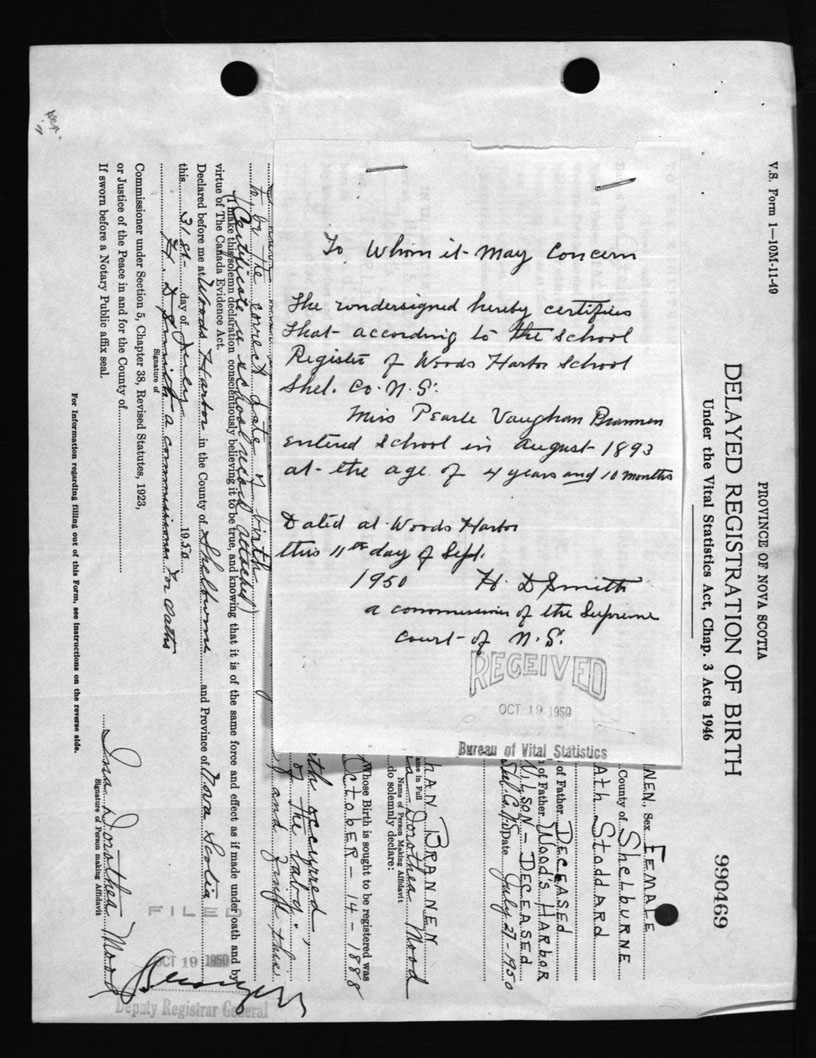 To Whom it May Concern
The undersigned hereby certifies
that according to the School
Register of Woods Harbor School
Shel. Co. N.S.
Miss Pearle Vaughan Brannen
entered School in August 1893
at the age of 4 years and 10 months
Dated at Woods Harbor
this 11th day of Sept.
1950 H. D Smith
a commissioner of the Supreme
Court of N.S.
RECEIVED
OCT 19 1950
Bureau of Vital Statistics
V.S. Form 1—10M-11-49
PROVINCE OF NOVA SCOTIA
DELAYED REGISTRATION OF BIRTH
Under the Vital Statistics Act, Chap. 3 Acts 1946
990469
NEN, Sex FEMALE
County of ShelBURNE
ATH StoddARD
of Father DECEASED
of Father Wood's HARBOR
WILSON - DECEASED
Date July 27-1950
HAN BRANNEN
ame in Full
Dorothea Mood
Name of Person Making Affidavit
do solemnly declare:
Whose Birth is sought to be registered was
OCTOBER - 14 - 1888
occurred
and
this
to be the correct date of birth
(Certificate of school record attached)
I make this solemn declaration conscientiously believing it to be true, and knowing that it is of the same force and effect as if made under oath and by
virtue of The Canada Evidence Act.
Declared before me at Woods Harbor in the County of Shelburne and Province of Nova Scotia
this 31st day of 1950
H. D Smith a commissioner for oaths
Signature of
Ina Dorothea Mood
Signature of Person making Affidavit
Commissioner under Section 5, Chapter 38, Revised Statutes, 1923,
or Justice of the Peace in and for the County of
If sworn before a Notary Public affix seal.
For Information regarding filling out of this Form, see instructions on the reverse side.
FILED
OCT 19 1950
Deputy Registrar General